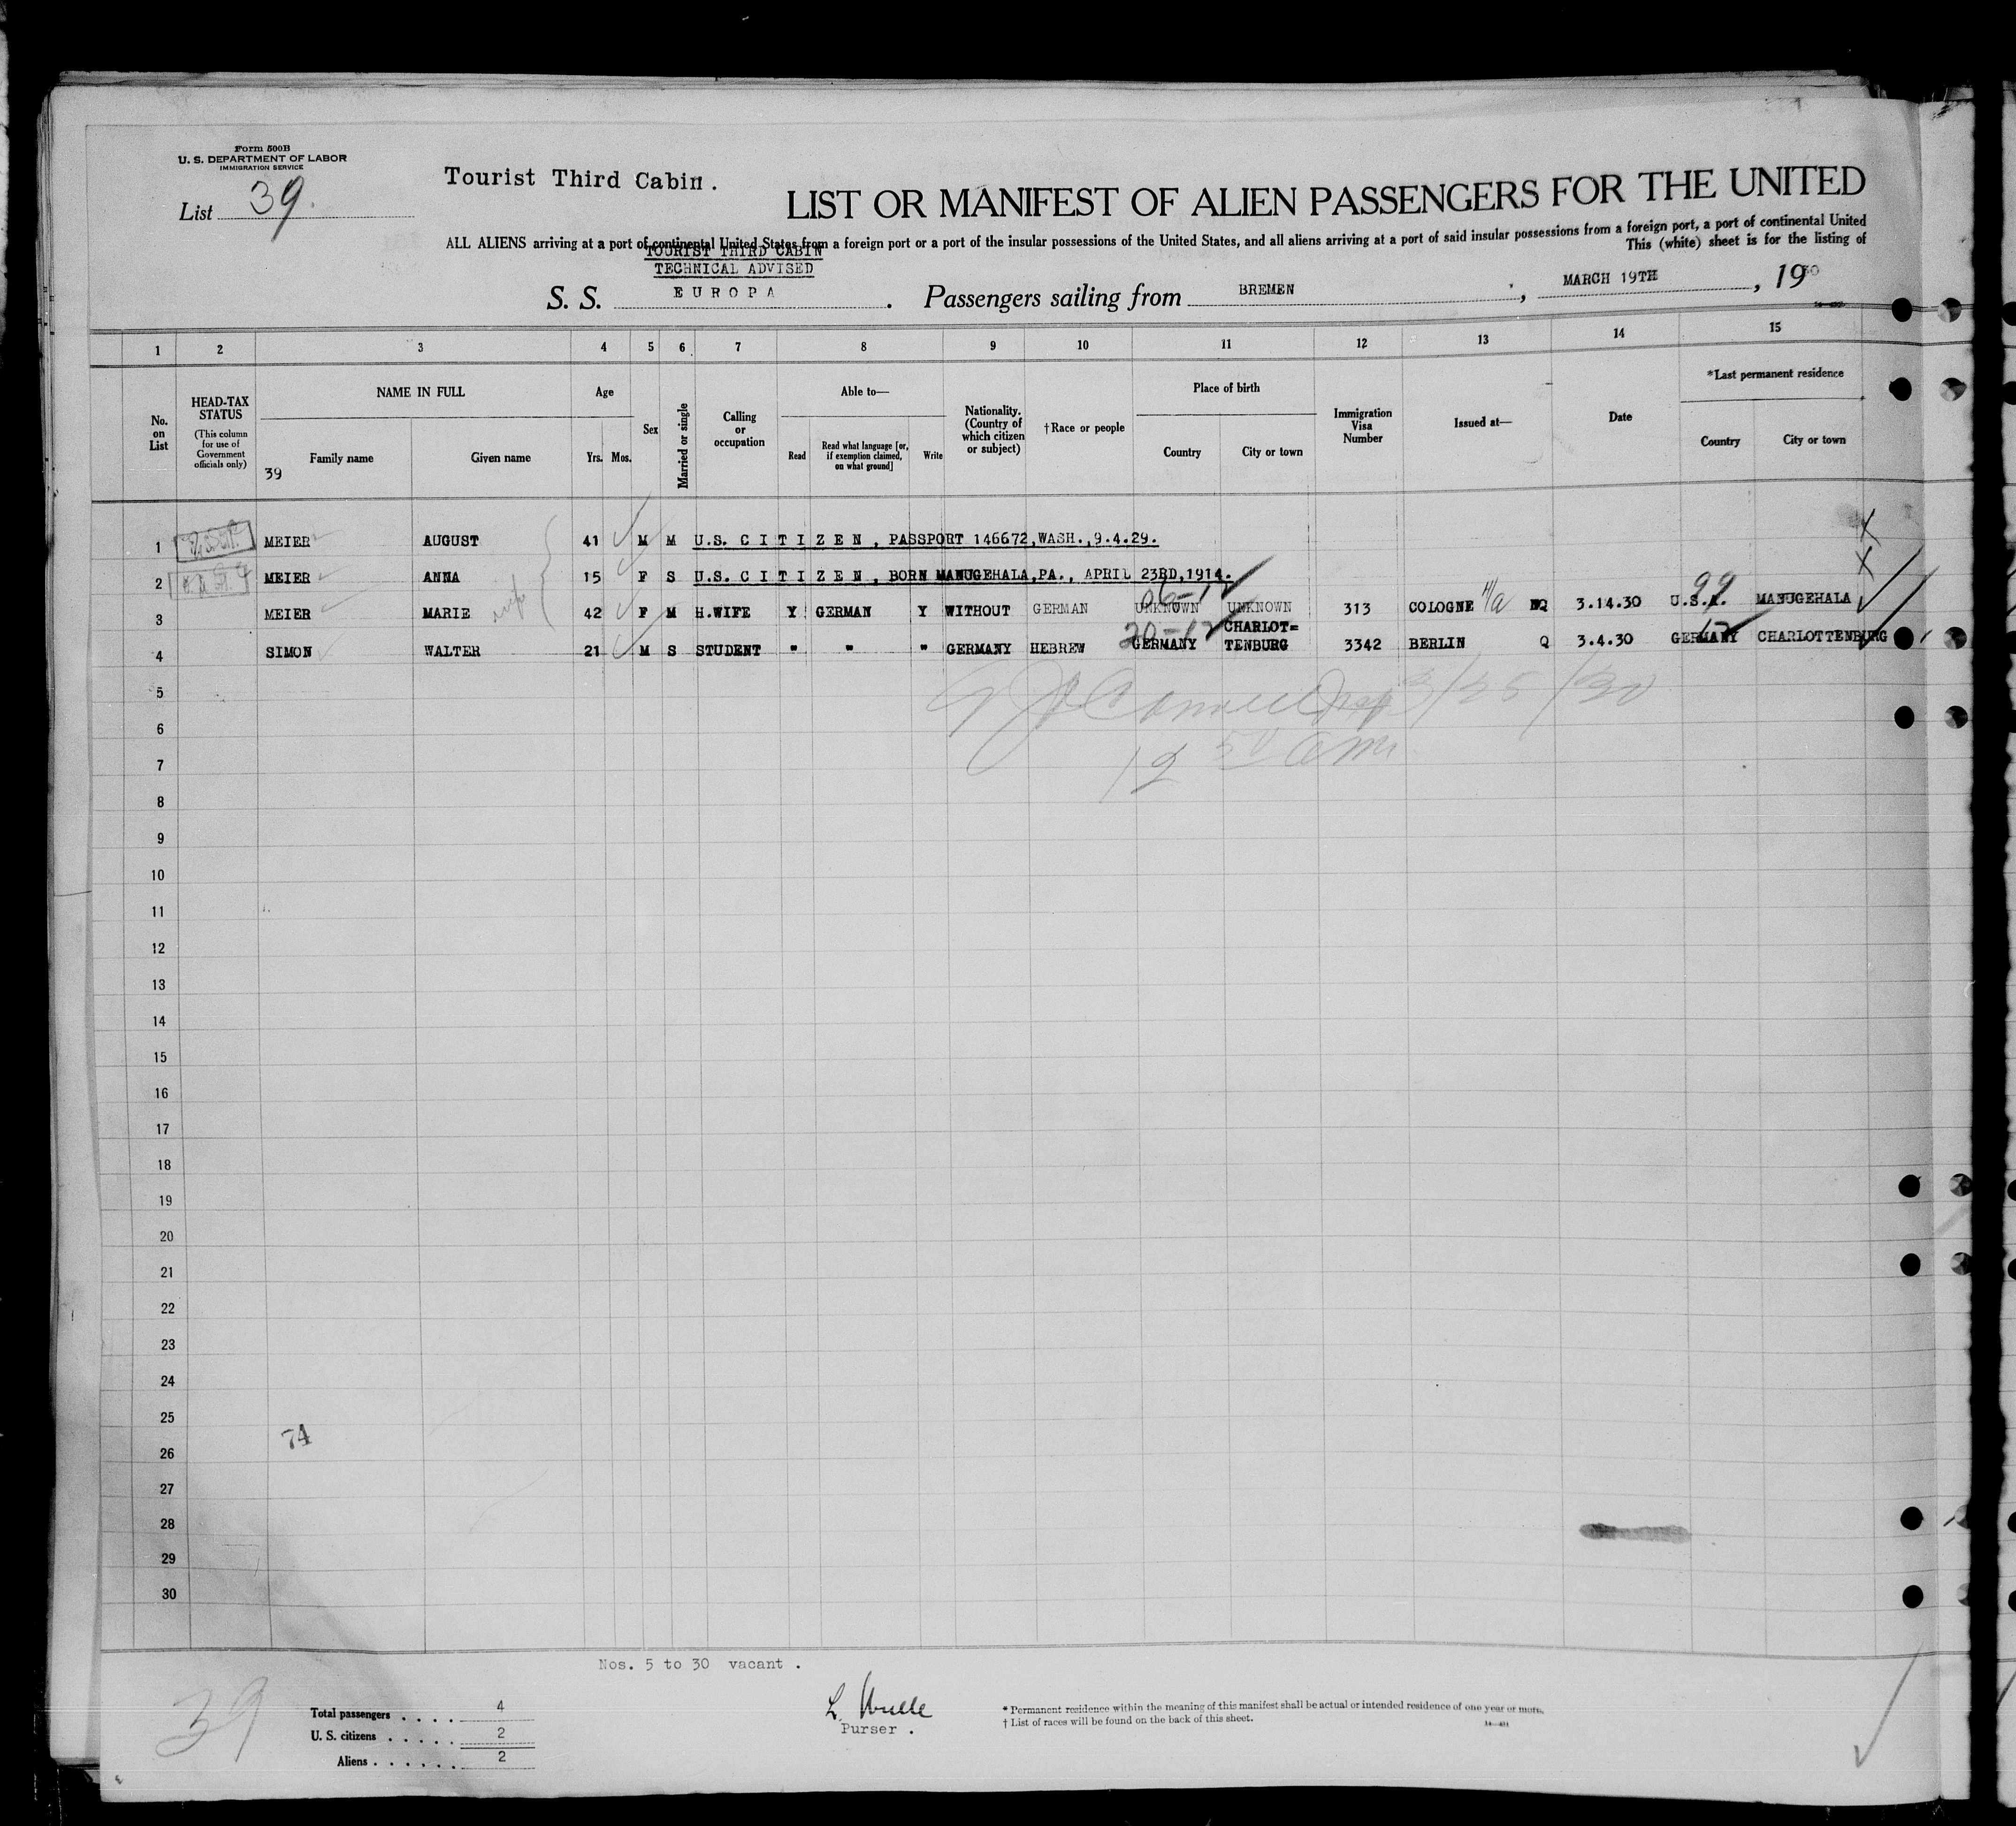 Form 500B
U. S. DEPARTMENT OF LABOR
IMMIGRATION SERVICE
List 39.
Tourist Third Cabin.
LIST OR MANIFEST OF ALIEN PASSENGERS FOR THE UNITED
ALL ALIENS arriving at a port of continental United States from a foreign port or a port of the insular possessions of the United States, and all aliens arriving at a port of said insular possessions from a foreign port, a port of continental United
This (white) sheet is for the listing of
TOURIST THIRD CABIN
TECHNICAL ADVISED
S. S. EUROPA. Passengers sailing from BREMEN, MARCH 19TH, 1930
1 2 3 4 5 6 7 8 9 10 11 12 13 14 15
No. on List
HEAD-TAX STATUS
(This column for use of Government officials only)
NAME IN FULL
39 Family name
Given name
Age
Yrs. Mos.
Sex
Married or single
Calling or occupation
Able to—
Read
Read what language [or, if exemption claimed, on what ground]
Write
Nationality. (Country of which citizen or subject)
†Race or people
Place of birth
Country
City or town
Immigration Visa Number
Issued at—
Date
*Last permanent residence
Country
City or town
1 MEIER AUGUST 41 M M U.S. C I T I Z E N , PASSPORT 146672,WASH.,9.4.29. X
2 MEIER ANNA 15 F S U.S. C I T I Z E N , BORN MANUGEHALA,PA., APRIL 23RD,1914. X
3 MEIER MARIE wife 42 F M H.WIFE Y GERMAN Y WITHOUT GERMAN UNKNOWN UNKNOWN 313 COLOGNE NQ 3.14.30 U.S.A. 99 MANUGEHALA
4 SIMON WALTER 21 M S STUDENT " " " GERMANY HEBREW GERMANY CHARLOT= TENBURG 3342 BERLIN Q 3.4.30 GERMANY CHARLOTTENBURG
5
3/25/30
6
7
12 50 am
8
9
10
11
12
13
14
15
16
17
18
19
20
21
22
23
24
25
74
26
27
28
29
30
Nos. 5 to 30 vacant .
39
Total passengers . . . . 4
U. S. citizens . . . . . 2
Aliens . . . . . . 2
Purser .
* Permanent residence within the meaning of this manifest shall be actual or intended residence of one year or more.
† List of races will be found on the back of this sheet.